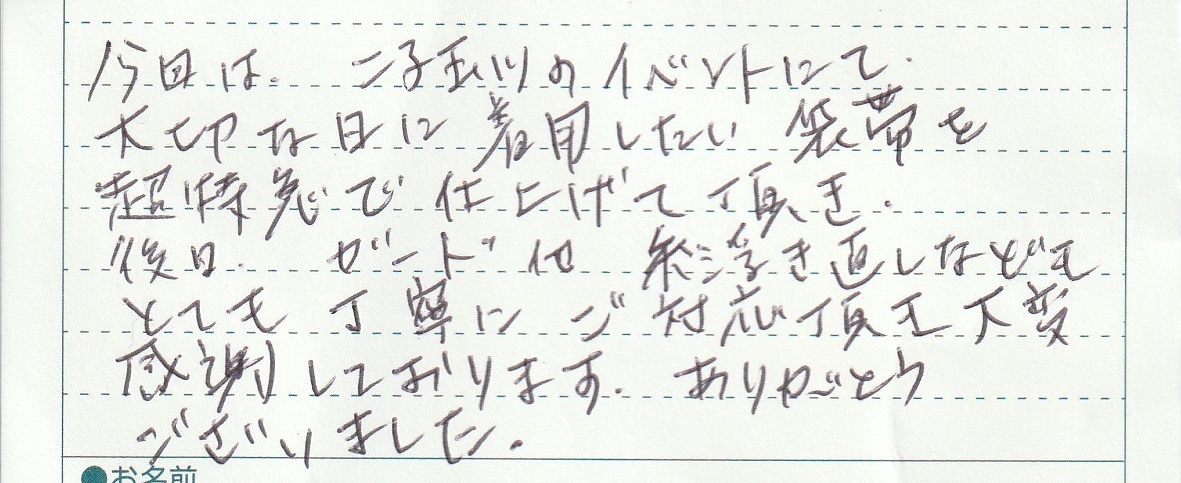 今回は、二子玉川のイベントにて、
大切な日に着用したい袋帯を
超特急で仕上げて頂き、
後日、ガード他 糸浮き直しなども
とても丁寧にご対応頂き大変
感謝しております。ありがとう
ございました。
●お名前